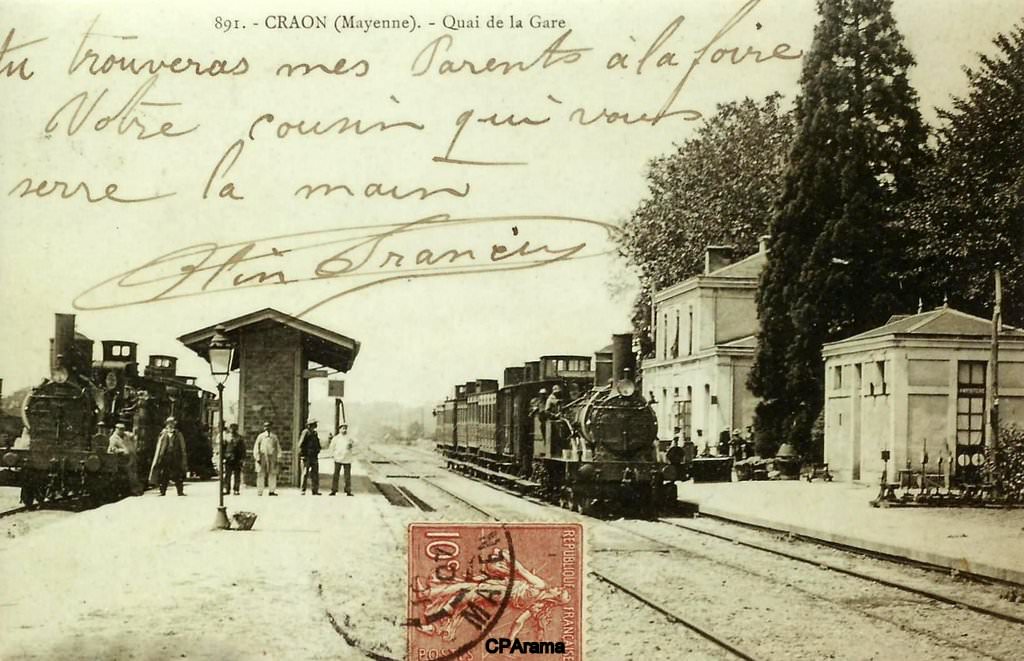 891. - CRAON (Mayenne). - Quai de la Gare
tu trouveras mes Parents à la foire
Votre cousin qui vous
serre la main
Francis
10c
REPUBLIQUE FRANÇAISE
POSTES
MAYEN
CPArama